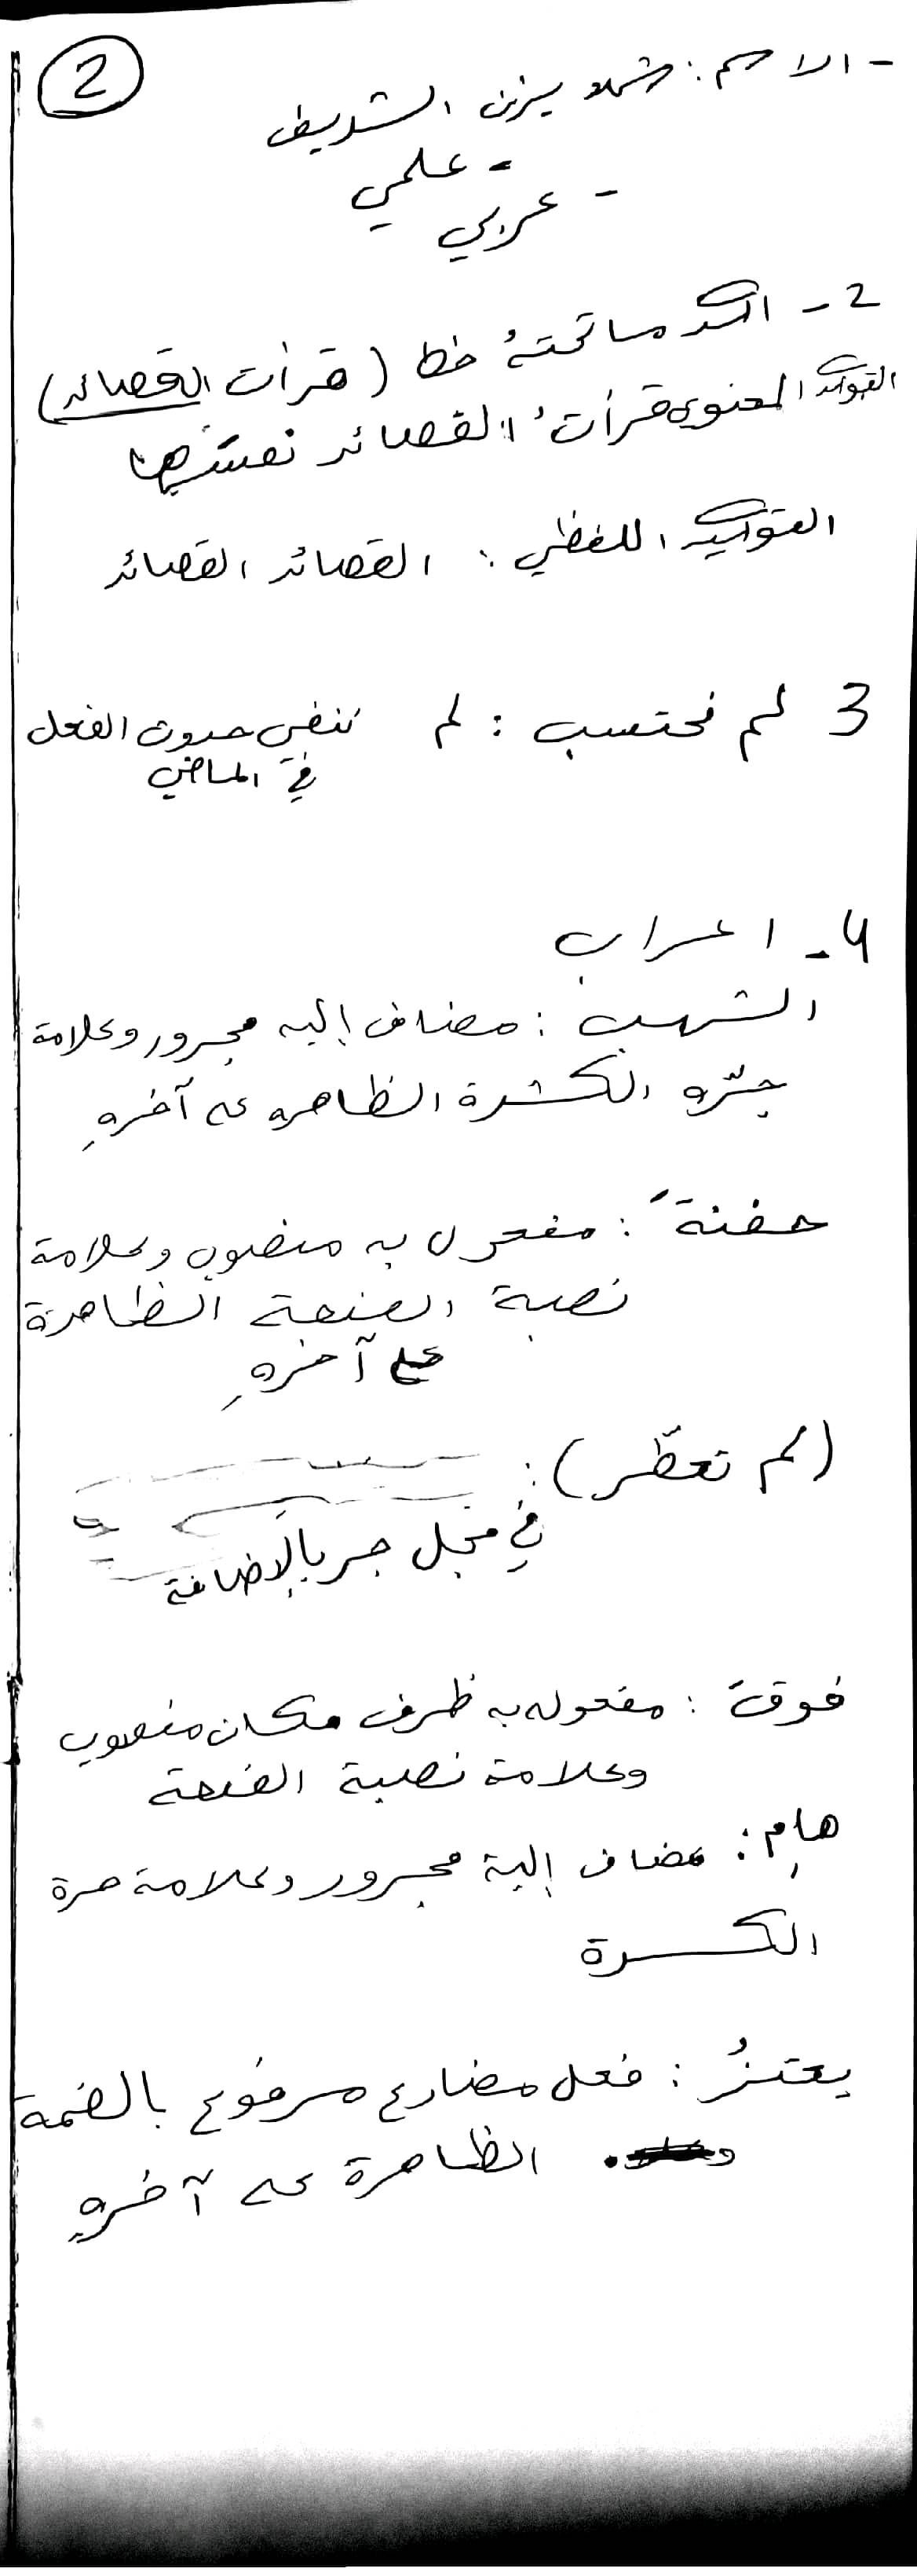 2
- الاسم: شهد يزن الشريف
- علمي
- عربي
2 - اكد ما تحتهُ خط (قرأت القصائد)
التوكيد المعنوي قرأتُ القصائد نفسَها
التوكيد اللفظي: القصائد القصائد
3 لم نحتسب: لم تنفي حدوث الفعل
في الماضي
4- اعراب
الشهب: مضاف إليه مجرور وعلامة
جرّه الكسرة الظاهره على آخرهِ
حفنةً: مفعول به منصوب وعلامة
نصبة الفتحة الظاهرة
على آخرهِ
(لم تعطّر):
في محل جر بالإضافة
فوقَ: مفعول به ظرف مكان منصوب
وعلامة نصبة الفتحة
هامِ: مضاف إلية مجرور وعلامة جرة
الكسرة
يعتزُ: فعل مضارع مرفوع بالضمة
الظاهرة على آخرهِ